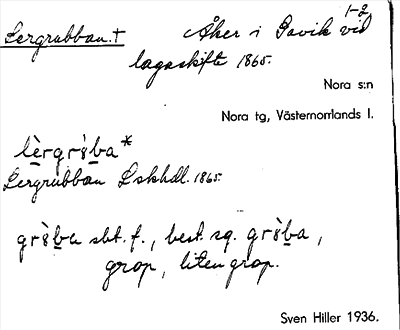 1-2
Lergrubban.† Åker i Gavik vid
lagaskifte 1865.
Nora s:n
Nora tg, Västernorrlands l.
lèrgrs̀ba*
Lergrubban Lskhdl. 1865.
grs̀ba sbt. f., best. sg. grs̀ba,
grop, liten grop.
Sven Hiller 1936.